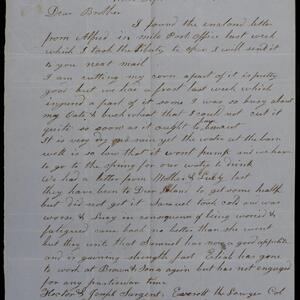 Dear Brother
I found the enclosed letter
from Alfred in mile Post Office last week
which I took the liberty to open I will send it
to you next mail
I am cutting my corn apart of it is pretty
good but we had a frost last week which
injured a part of it some I was so busy about
my Oats & buckwheat that I could not cut it
quite so soon as it ought to
It is very dry and rain yet the water at the barn
well is so low that it wont pump and we have
to go to the spring for our water to drink
We had a letter from Mother & last
they have been to Deer Island to get some health
but did not get it Samuel took cold and was
worse & Lucy in consequence of being worried &
fatigued came back no better than she went
but they write that Samuel has now a good appetite
and is gaining strength fast Elijah has gone
to work at Brown & Sons again but has not engaged
for any particular time
Hector & Joseph Sargent. Everett the Lawyer Col